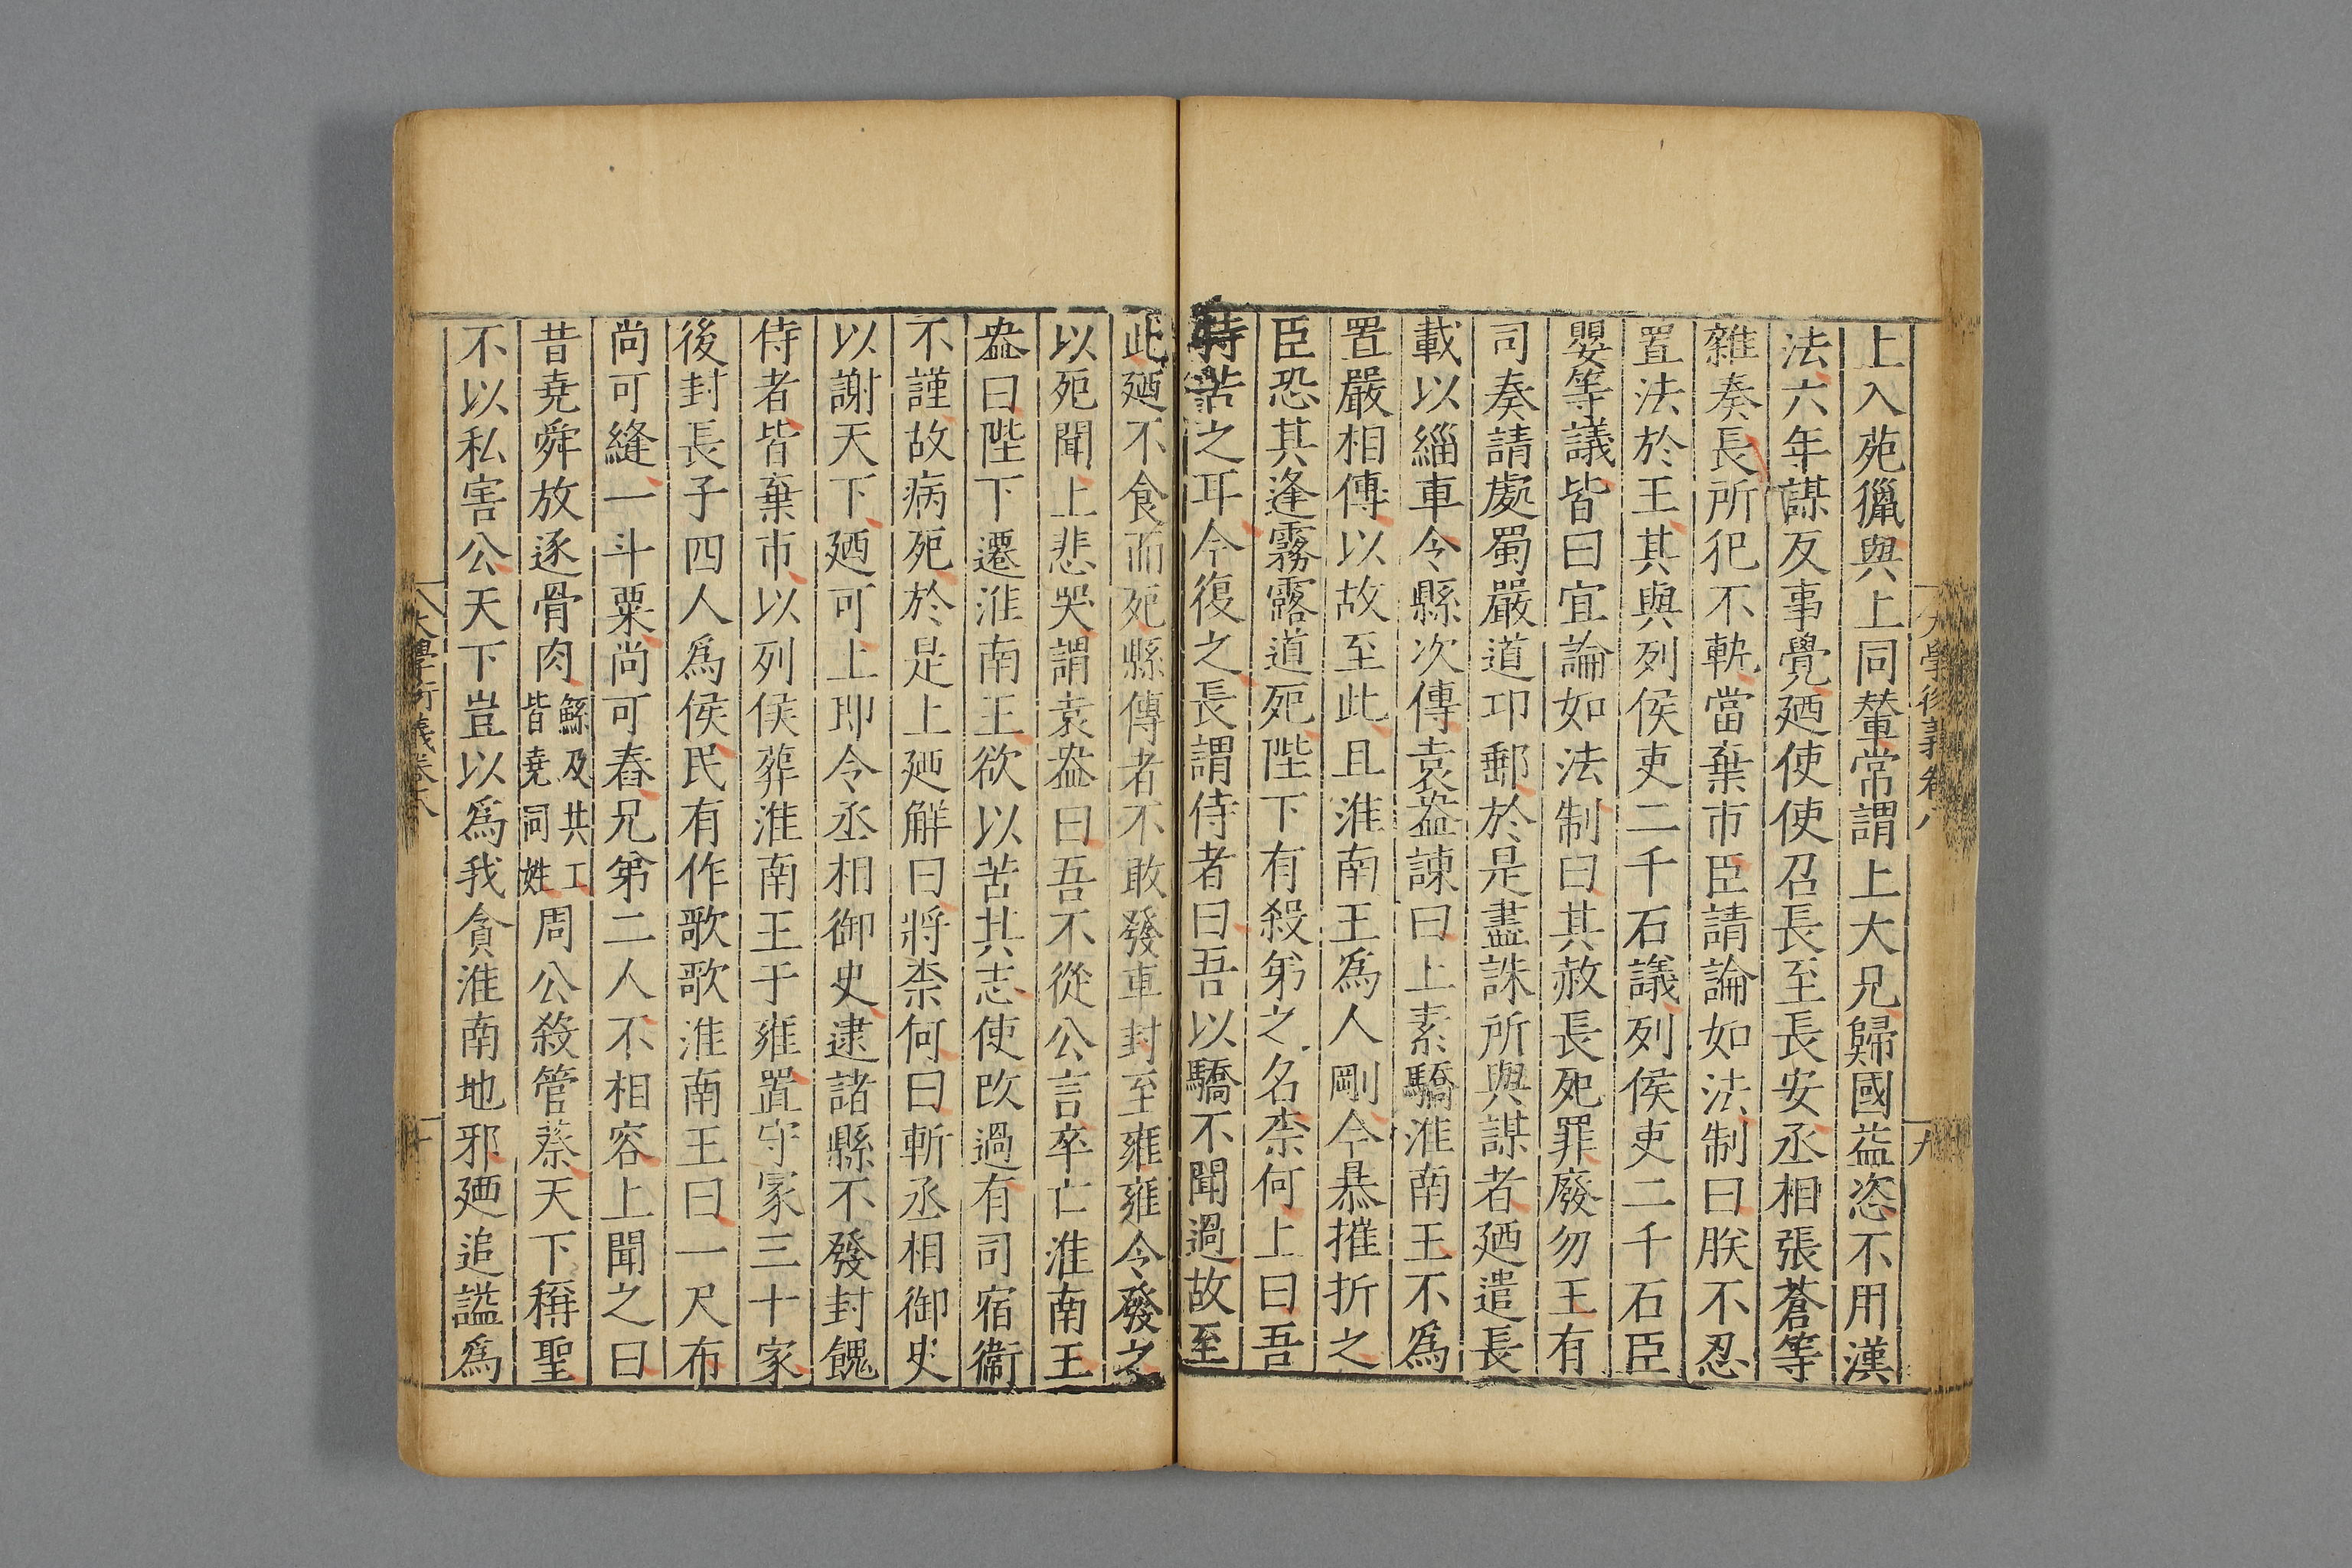 上入苑獵與上同輦常謂上大兄歸國益恣不用漢
法六年謀反事覺廼使使召長至長安丞相張蒼等
雜奏長所犯不軌當棄市臣請論如法制曰朕不忍
置法於王其與列侯吏二千石議列侯吏二千石臣
嬰等議皆曰宜論如法制曰其赦長死罪廢勿王有
司奏請處蜀嚴道邛郵於是盡誅所與謀者廼遣長
載以緇車令縣次傳袁盎諫曰上素驕淮南王不爲
置嚴相傅以故至此且淮南王爲人剛今暴摧折之
臣恐其逢霧露道死陛下有殺弟之名柰何上曰吾
特苦之耳令復之長謂侍者曰吾以驕不聞過故至
此廼不食而死縣傳者不敢發車封至雍雍令發之
以死聞上悲哭謂袁盎曰吾不從公言卒亡淮南王
盎曰陛下遷淮南王欲以苦其志使改過有司宿衞
不謹故病死於是上廼解曰將柰何曰斬丞相御史
以謝天下廼可上即令丞相御史逮諸縣不發封餽
侍者皆棄市以列侯葬淮南王于雍置守冢三十家
後封長子四人爲侯民有作歌歌淮南王曰一尺布
尚可縫一斗粟尚可舂兄弟二人不相容上聞之曰
昔堯舜放逐骨肉鯀及共工皆堯同姓周公殺管蔡天下稱聖
不以私害公天下豈以爲我貪淮南地邪廼追諡爲
大學衍義卷八
九
大學衍義卷八
十